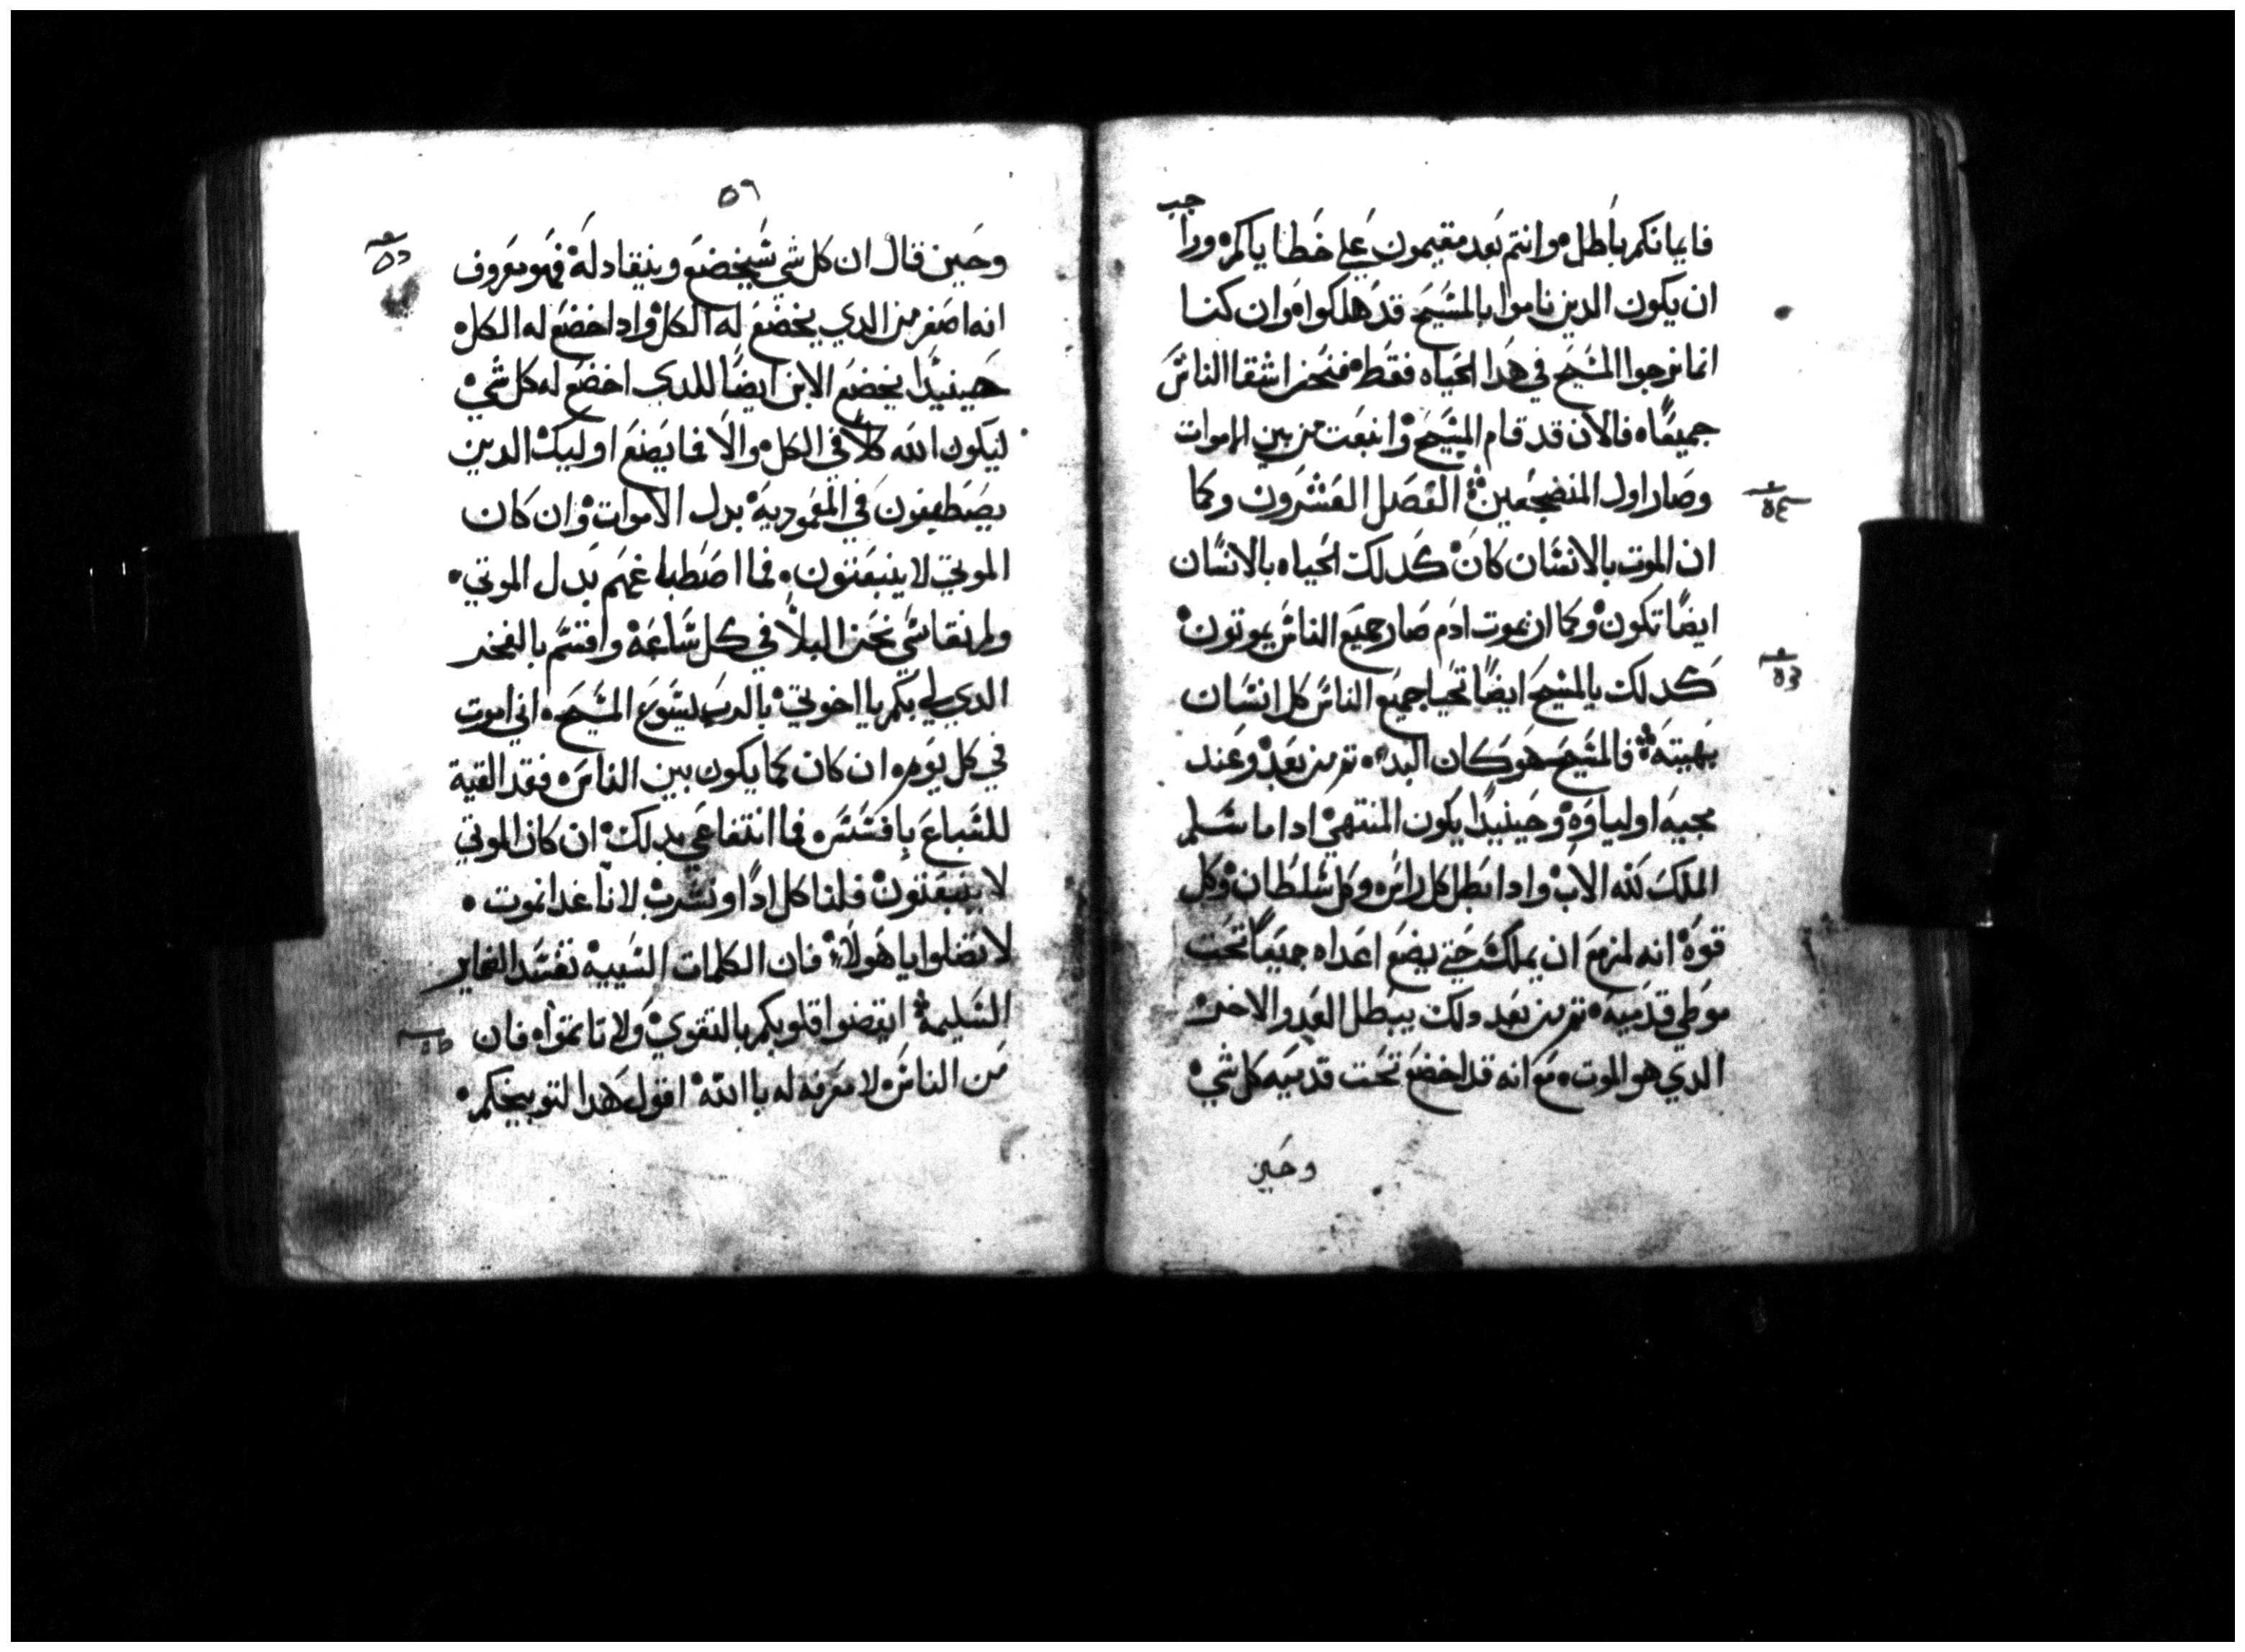 فايمانكم باطل وانتم بعد مقيمون علي خطاياكم ورا
جب
ان يكون الدين ناموا بالمسيح قد هلكوا وان كنا
انما نرجوا المسيح في هدا الحياه فقط فنحن اشقا الناس
جميعًا فالان قد قام المسيح وانبعت من بين الاموات
وصار اول المنضجعين الفصل العشرون وكما
٥٤
ان الموت بالانسان كان كدلك الحياه بالانسان
ايضًا تكون وكما ان بموت ادم صار جميع الناس يموتون
كدلك بالمسيح ايضًا تحيا جميع الناس كل انسان
بهيته فالمسيح هو كان البد تم من بعد وعند
مجيه اولياوه وحينيدًا يكون المنتهي ادا ما سلم
الملك لله الاب وادا ابطل كل راس وكل سلطان وكل
قوة انه لمزمع ان يملك حتي يضع اعداه جميعًا تحت
موطي قدميه تم من بعد دلك يبطل العدو الاخر
الدي هو الموت مع انه قد اخضع تحت قدميه كل شي
وحين
٥٩
وحين قال ان كل شي سيخضع وينقاد له فهو معروف
انه اصغر من الدي يخضع له الكل وادا خضع له الكل
حينيدًا يخضع الابن ايضًا للدي اخضع له كل شي
ليكون الله كلاً في الكل والا فما يصنع اوليك الدين
يصطبغون في المعموديه بدل الاموات وان كان
الموتي لا ينبعتون فما اصطباغهم بدل الموتي
ولم نقاسي نحن البلا في كل ساعه واقسم بالفخر
الدي لي بكم يا اخوتي بالرب يسوع المسيح اني اموت
في كل يوم ان كان كما يكون بين الناس فقد القية
للسباع بافسس فما انتفاعي بدلك ان كان الموتي
لا ينبعتون فلنا كل ادًا ونشرب لانا غدا نموت
لا تضلوا يا هولاء فان الكلمات السييه تفسد الضماير
السليمة ايقضوا قلوبكم بالتقوي ولا تاتموا فان
من الناس لا معرفه له باالله اقول هدا لتوبيخكم